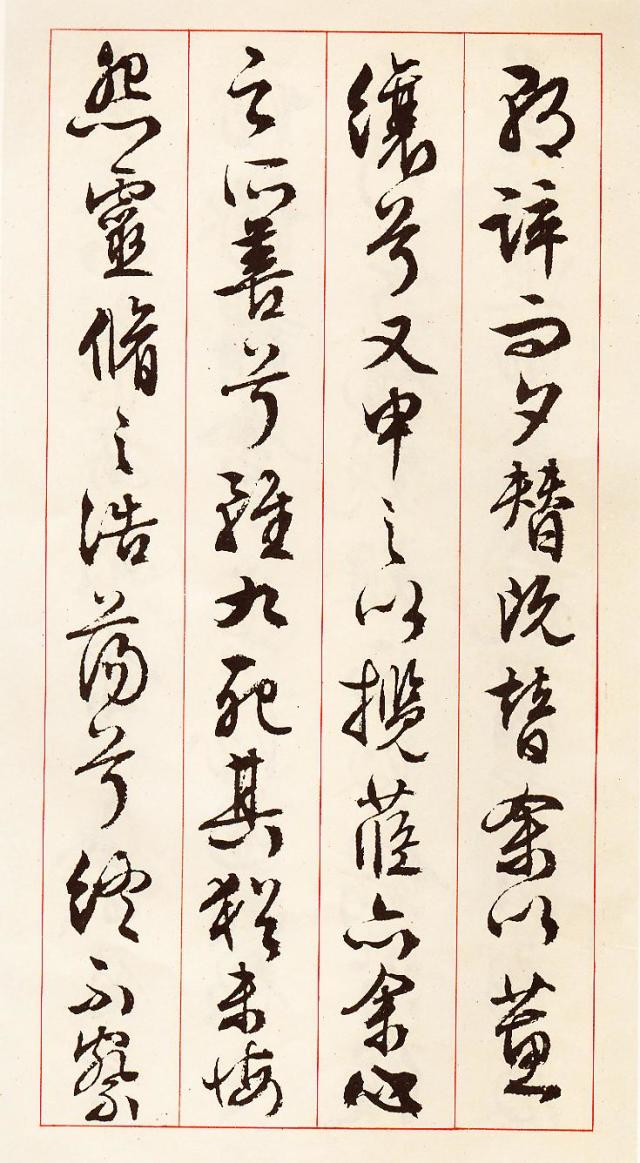 朝誶而夕替既替余以蕙
纕兮又申之以攬茝亦余心
之所善兮雖九死其猶未悔
怨靈脩之浩蕩兮終不察